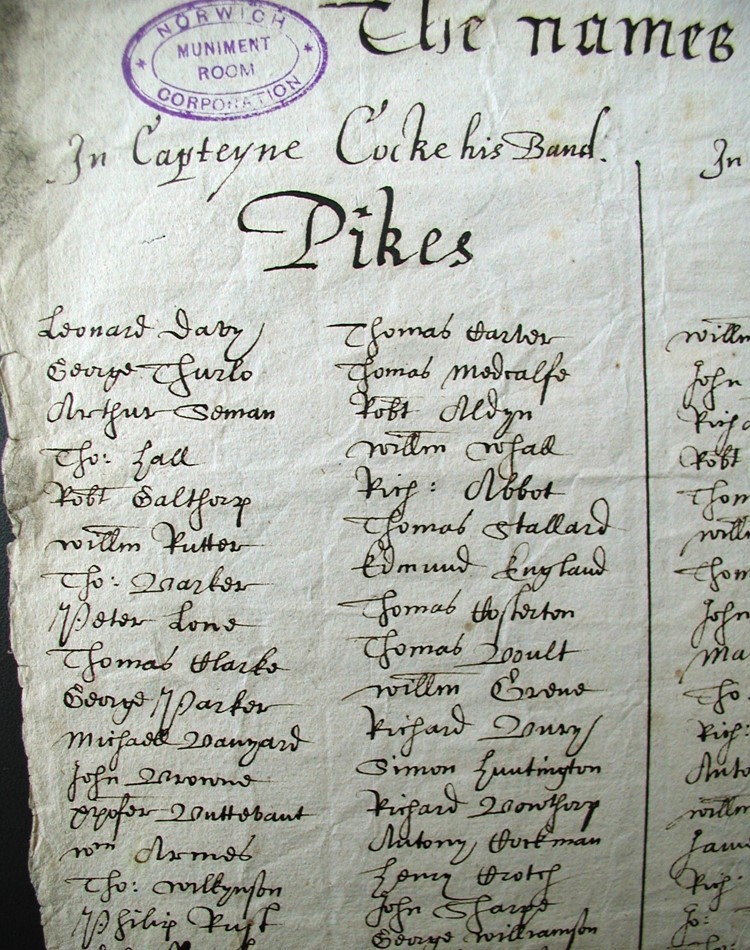 NORWICH
MUNIMENT
ROOM
CORPORATION
The names
In Capteyne Cocke his Band.
In
Pikes
Leonard Davy
George Thurlo
Arthur Seman
Tho: Hall
Robt Calthorp
willm Rutter
Tho: Barker
Peter Lone
Thomas Clarke
George Parker
Michaell Banyard
John Browne
xpofer Buttevant
wm Armes
Tho: wilkynson
Philip Rust
Thomas Carter
Thomas Medcalfe
Robt Aldyn
willm whall
Rich: Abbot
Thomas Stallard
Edmund England
Thomas Costerton
Thomas Boult
willm Grene
Richard Bury
Simon Huntington
Richard Bowthorp
Antony Cockman
Henry Crotch
John Sharpe
George williamson
willm
John
Rich
Robt
Thom
will
Thom
John
Ma
Tho
Rich:
Anto
willm
Jam
Rich
Jo:
Tho: